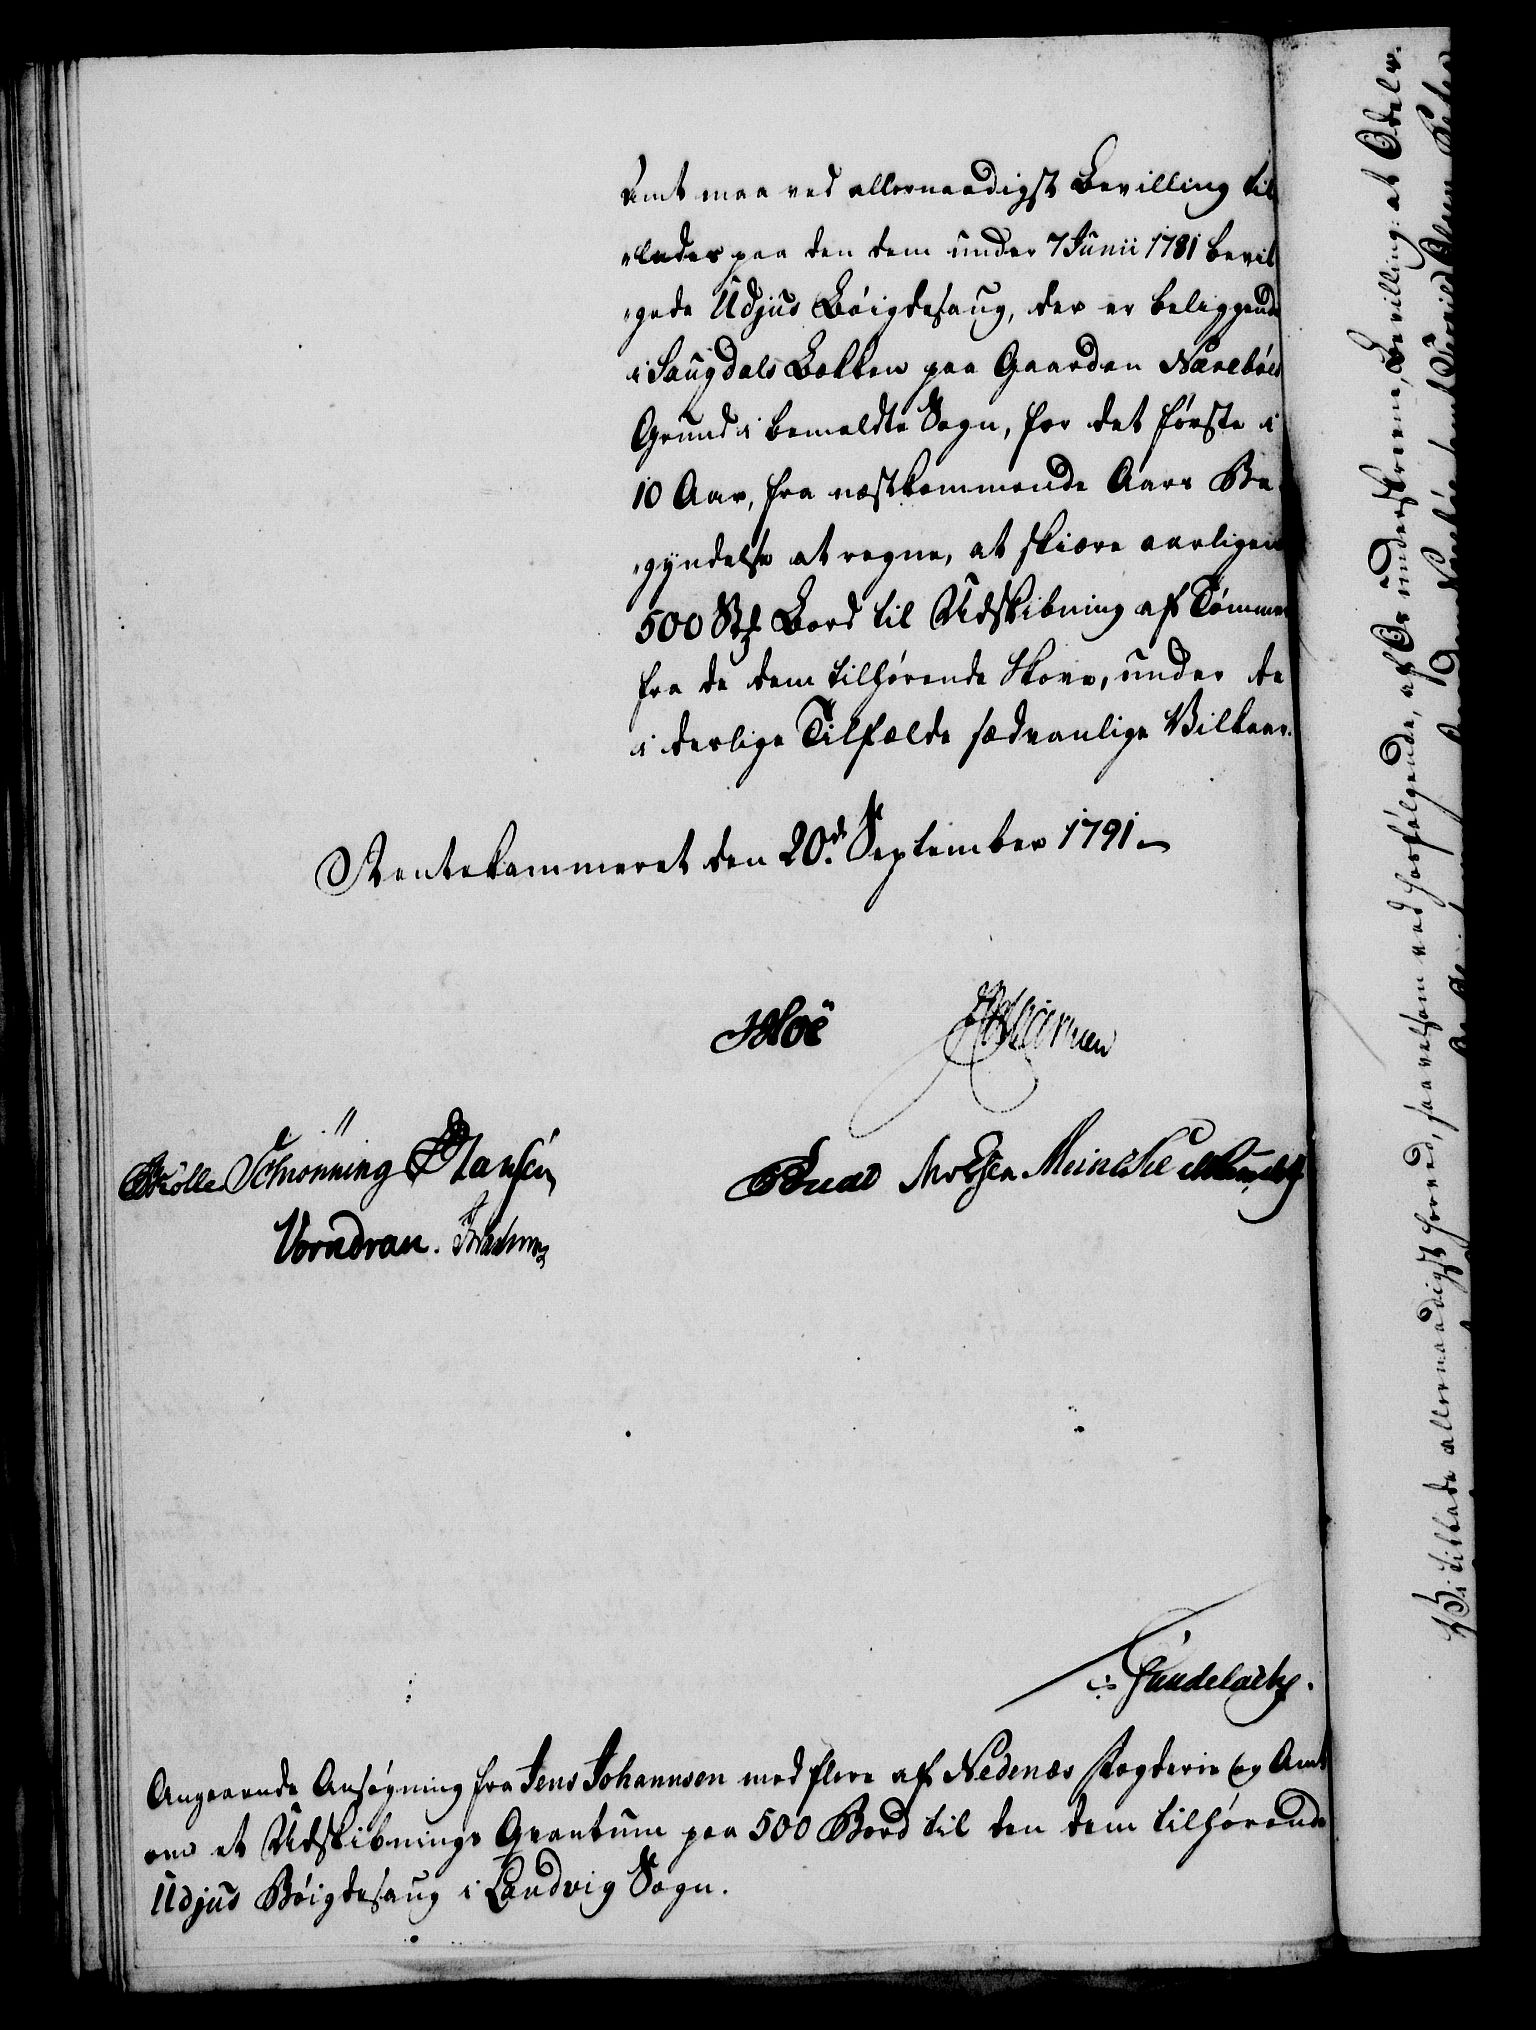 Amt maa ved allernaadigst Bevilling til
„lades paa den dem under 7 Junii 1781 bevil
„gede Udjus Böigdesaug, der er beliggende
i Saugdals Bekken paa Gaarden Næreböes
Grund i bemeldte Sogn, for det förste i
10 Aar, fra næstkommende Aars Be-
„gyndelse at regne, at skiære aarligen
500 Stk Bord til Udskibning af Tömmer
fra de dem tilhörende Skove, under de
i deslige Tilfælde sædvanlige Vilkaar.
Rentekammeret den 20de September 1791.
Hoë
Schrönning Hansen
Meincke
Vorndran.
Gundelach.
Angaaende Ansøgning fra Jens Johannsen med flere af Nedenæs Fogderie og Amt
om et Udskibnings Qvantum paa 500 Bord til den dem tilhörende
Udjus Böigdesaug i Landvig Sogn.
Vi tillade allernaadigst herved, saavelsom ved hosfølgende, af Os underskrevne, Bevilling: at Odels-